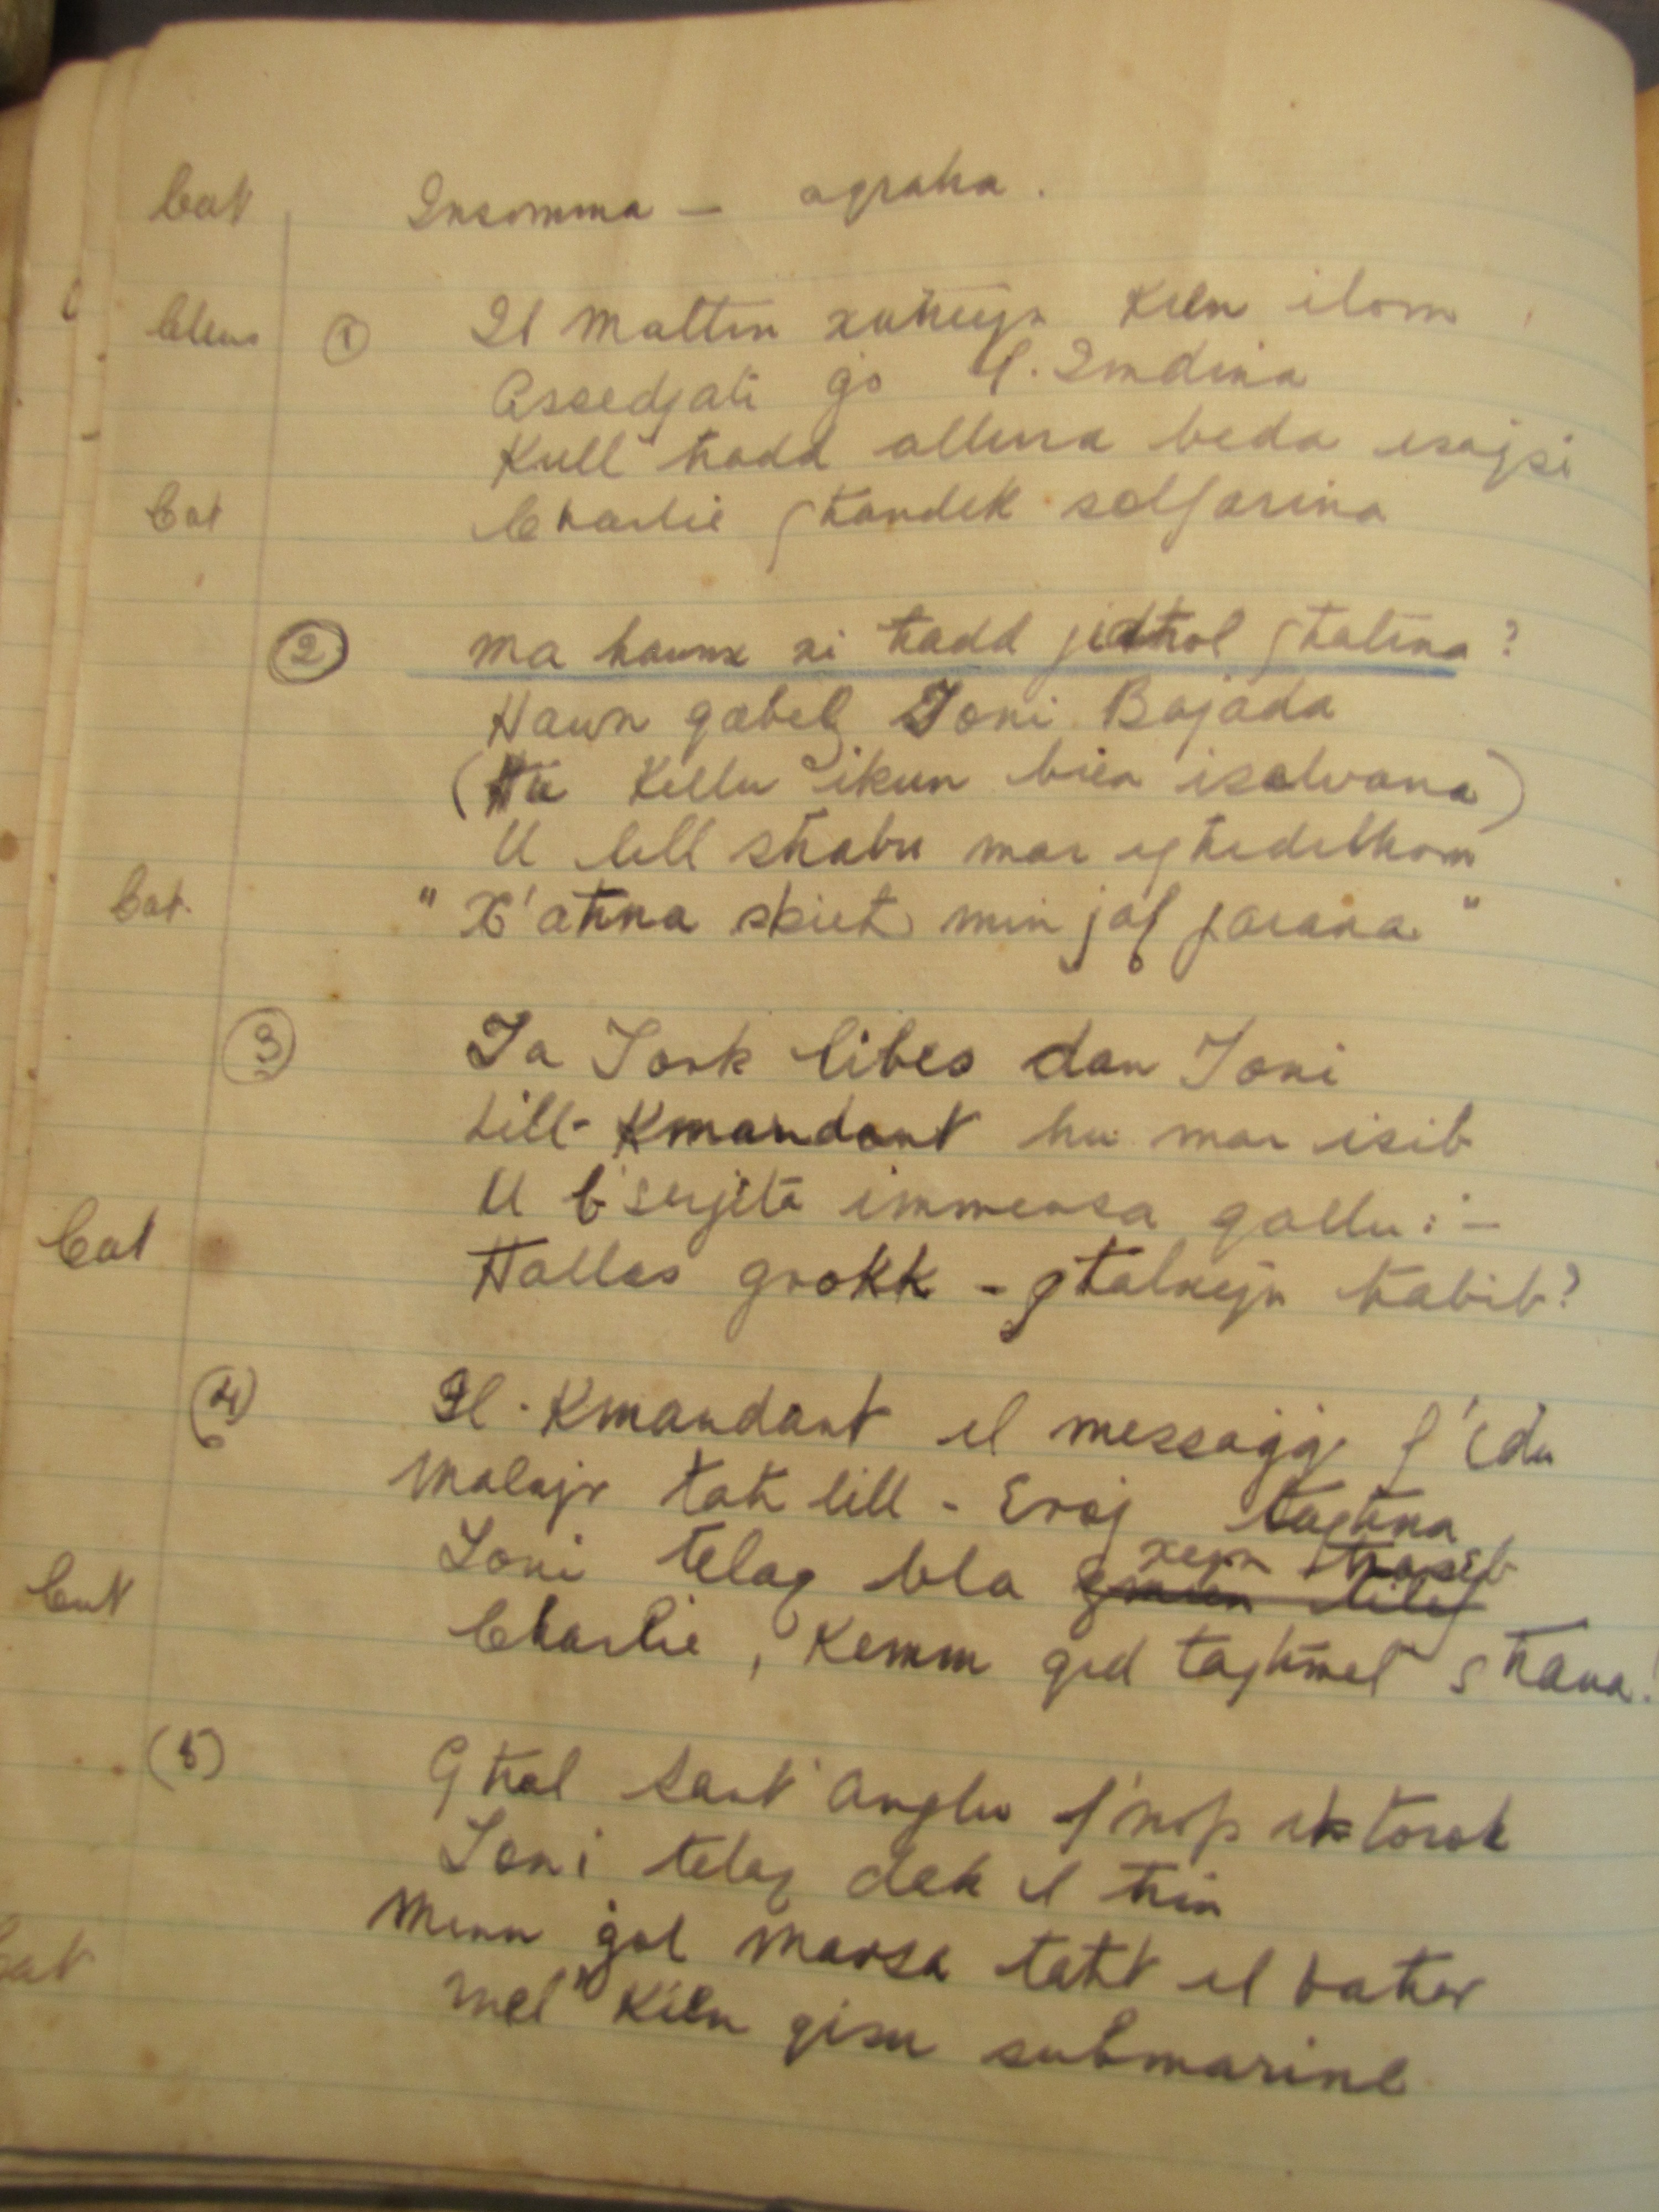 Cat Insomma — aqraha.
① Il Maltin xiħeyn kien ilom
Assedjati go l. Imdina
Kull ħadd allura beda isajjsi
Cat Charlie għandek solfarina
② Ma hawnx xi ħadd jidħol għalina?
Hawn qabeż Toni Bajada
(Hu kellu ikun biex isalvana)
U lill sħabu mar egħedilhom
Cat. "X'aħna sbieħ min jaf jarana"
③ Ta Tork libes dan Toni
Lill-Kmandant hu mar isib
U b'serjetà immensa qallu:-
Cat Hallas grokk - għalneja ħabib?
④ Il-Kmandant il messaġġ f'idu
Malajr tah lill-Evoj tagħna
Toni telaq bla xejn ħaseb
Cat Charlie, kemm qed tagħmel sħana!
(5) Għal Sant Anglu f'nofs it-torok
Toni telaq dak il ħin
Minn ġol Marsa taħt il baħar
Cat mel kien qisu submarine